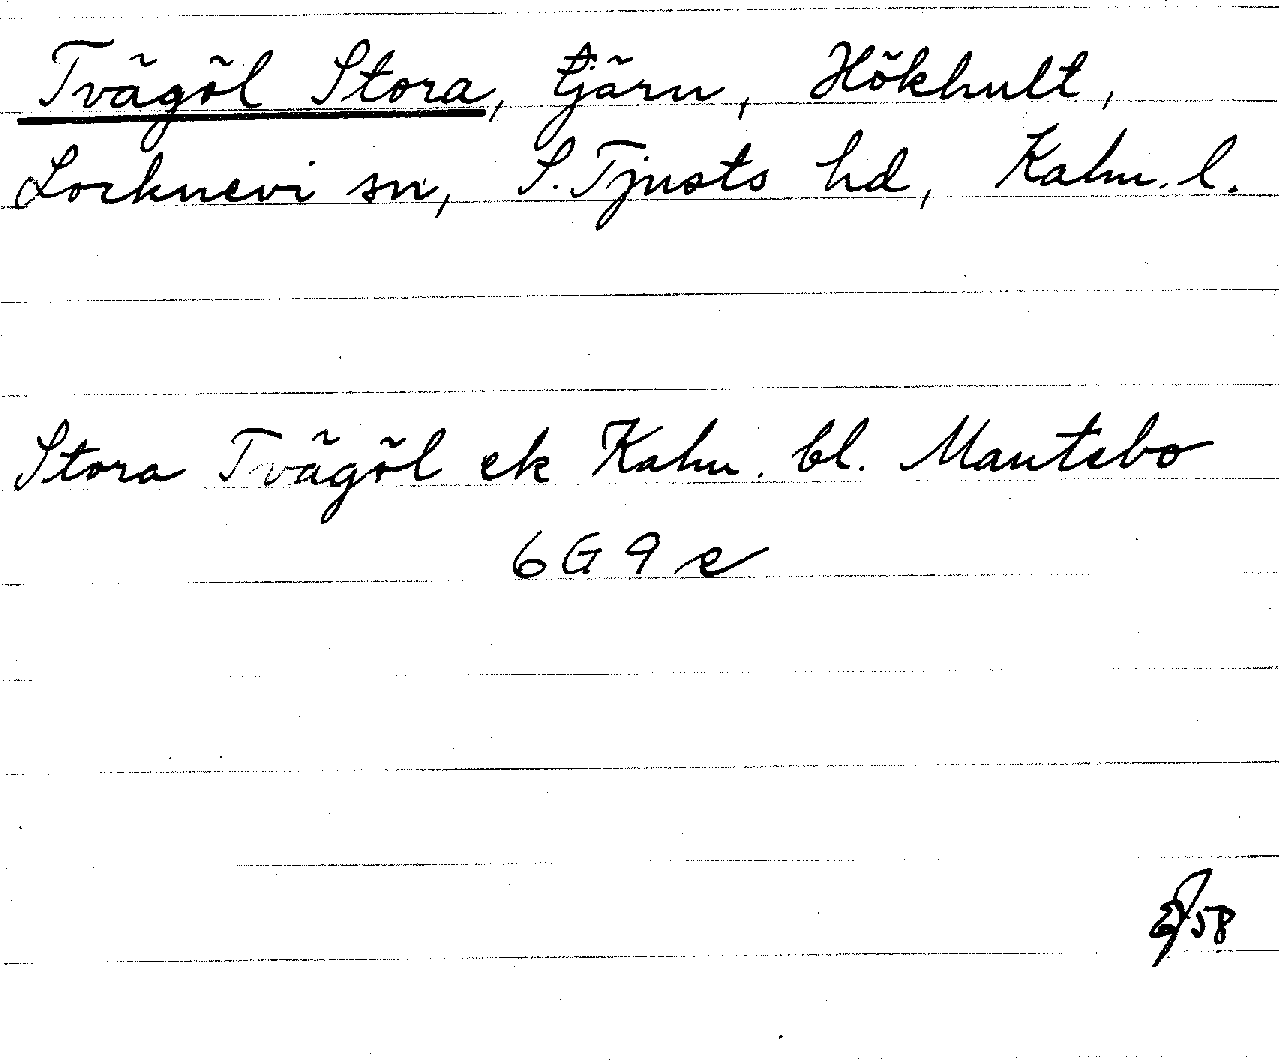 Tvägöl Stora, tjärn, Hökhult,
Locknevi sn, S. Tjusts hd, Kalm. l.
Stora Tvägöl ek Kalm. bl. Mantebo
6G 9e
58